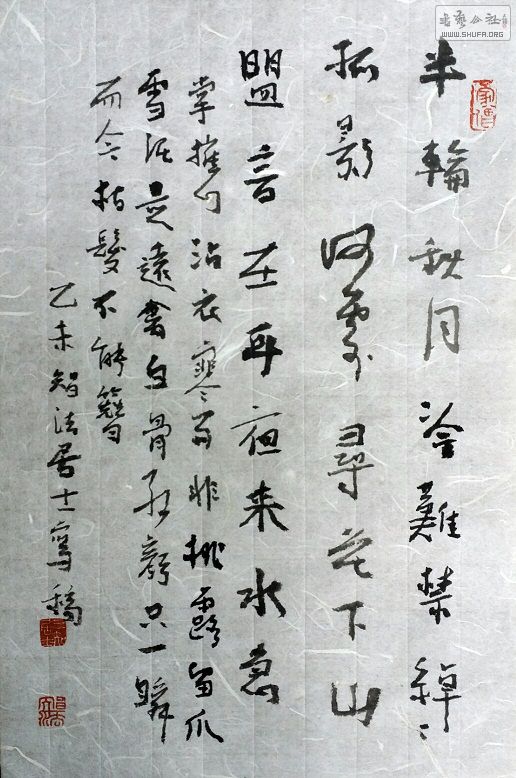 半輪秋月冷難禁綽々
孤影何處尋花下山
盟言在耳夜来水急
掌沾衣寒非桃露留爪
雪泥是遠書白骨紅顏只一瞬
而今髮不能簪
乙未智法居士寫稿
書藝公社
WWW.SHUFA.ORG